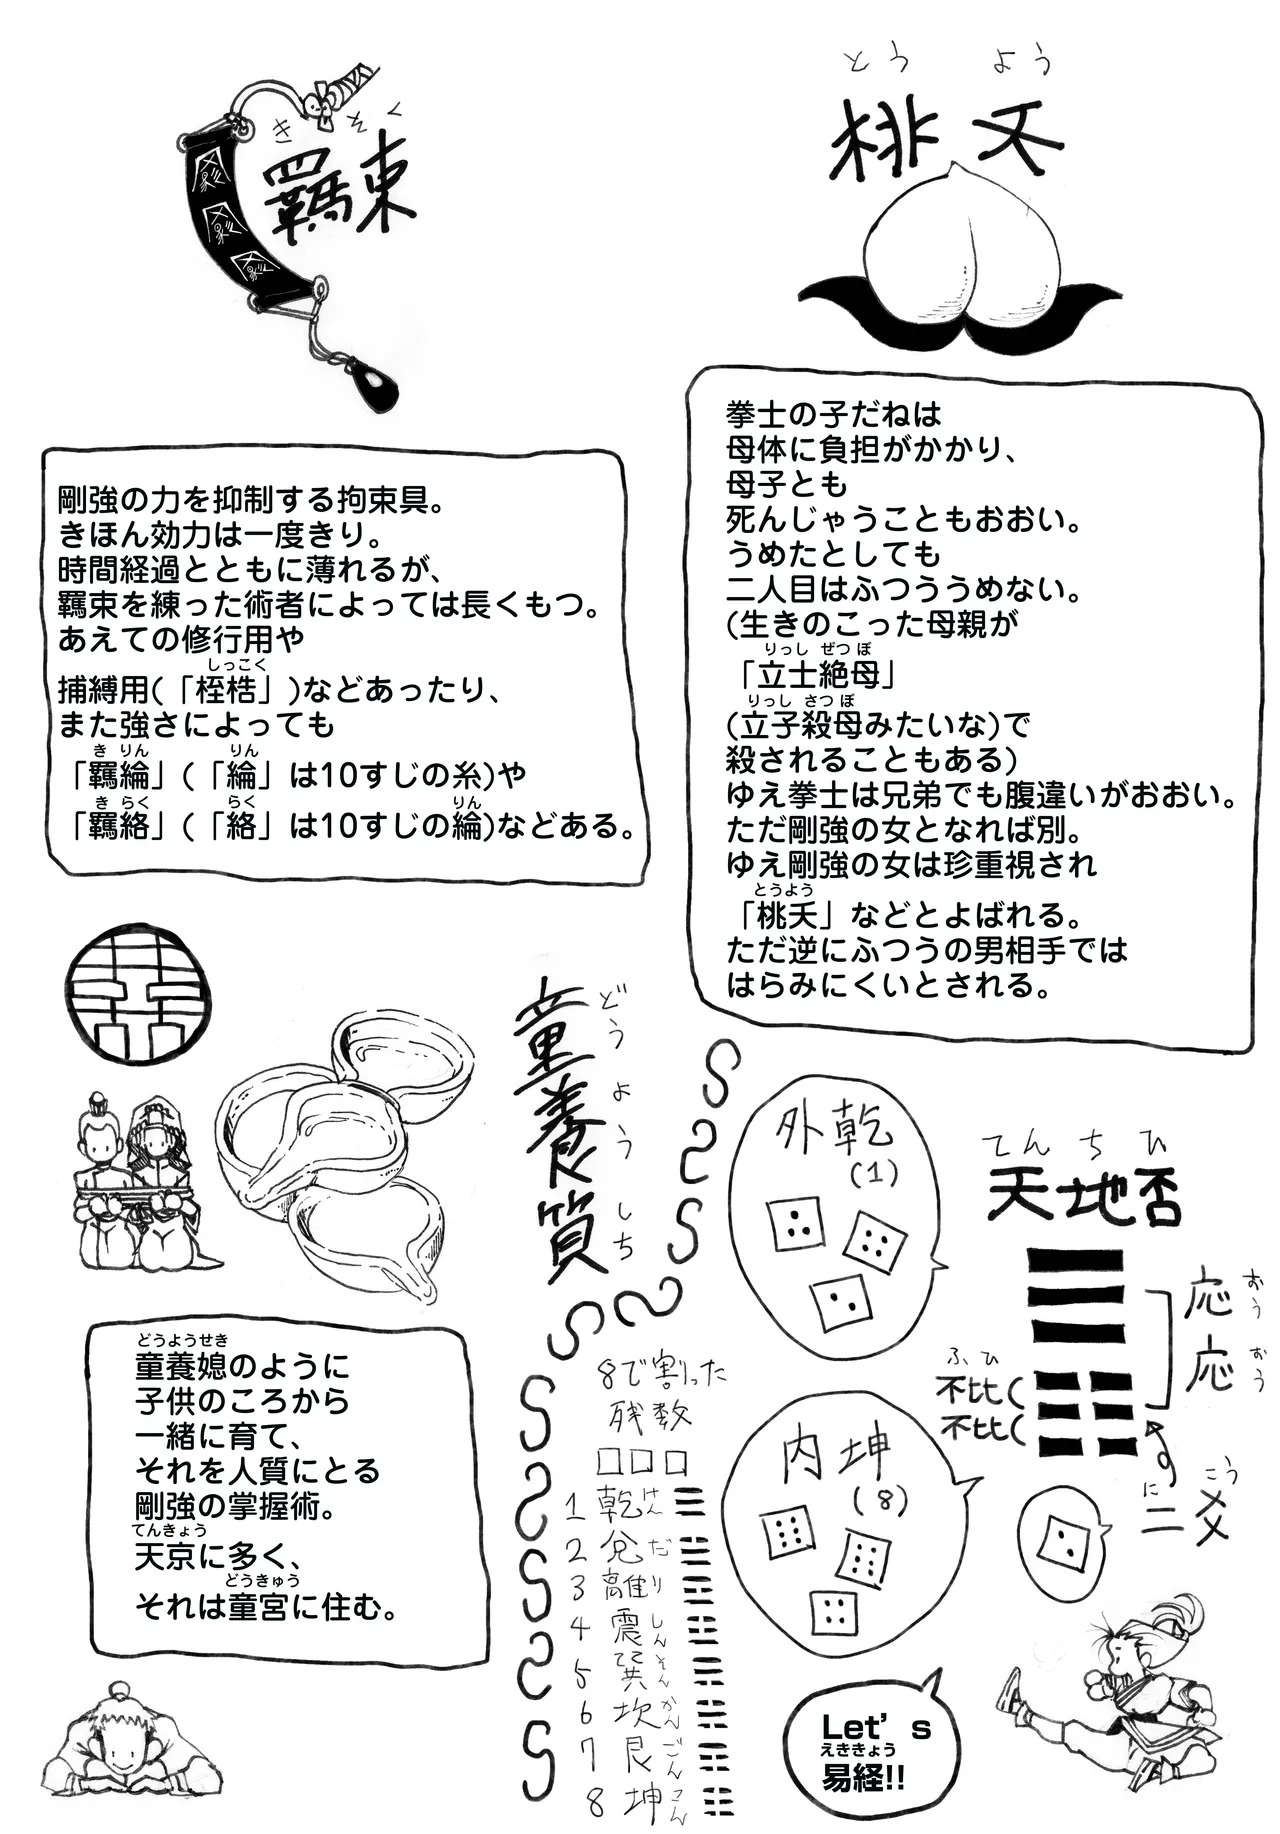 きそく
羈束
剛強の力を抑制する拘束具。
きほん効力は一度きり。
時間経過とともに薄れるが、
羈束を練った術者によっては長くもつ。
あえての修行用や
しっこく
捕縛用(「桎梏」)などあったり、
また強さによっても
きりん りん
「羈綸」(「綸」は10すじの糸)や
きらく らく りん
「羈絡」(「絡」は10すじの綸)などある。
とうよう
桃夭
拳士の子だねは
母体に負担がかかり、
母子とも
死んじゃうこともおおい。
うめたとしても
二人目はふつううめない。
(生きのこった母親が
りっし ぜつぼ
「立士絶母」
りっし さつぼ
(立子殺母みたいな)で
殺されることもある)
ゆえ拳士は兄弟でも腹違いがおおい。
ただ剛強の女となれば別。
ゆえ剛強の女は珍重視され
とうよう
「桃夭」などとよばれる。
ただ逆にふつうの男相手では
はらみにくいとされる。
童養質
どうようしち
どうようせき
童養媳のように
子供のころから
一緒に育て、
それを人質にとる
剛強の掌握術。
てんきょう
天京に多く、
どうきゅう
それは童宮に住む。
8で割った
残数
□□□
1 乾 けん ☰
2 兌 だ ☱
3 離 り ☲
4 震 しん ☳
5 巽 そん ☴
6 坎 かん ☵
7 艮 ごん ☶
8 坤 こん ☷
外乾
(1)
内坤
(8)
てんちひ
天地否
応 おう
応 おう
ふひ
不比(
不比(
にこう
二爻
Let's
えききょう
易経!!